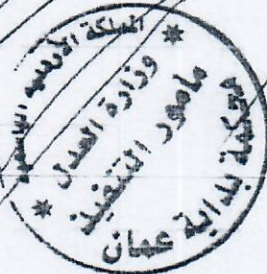 المملكة الأردنية الهاشمية
وزارة العدل
مأمور التنفيذ
محكمة بداية عمان